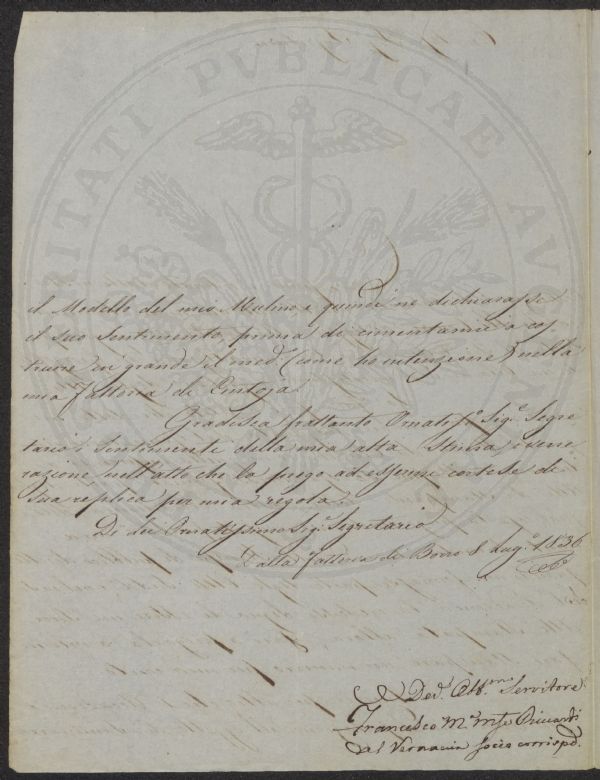 PROSPERITATI PVBLICAE AVGENDAE
il Modello del mio Mulino, e quindi ne dichiarasse
il suo Sentimento prima di cimentarmi a cos,
truire in grande il med.º (come ho intenzione) nella
mia Fattoria di Pistoja.
Gradisca frattanto Ornatiss.º Sig.e Segre
tario i Sentimenti della mia alta Stima, e vene
razione, nell'atto che la prego ad essermi cortese di
Sua replica per mia regola.
Di Lei Ornatissimo Sig.e Segretario
Dalla Fattoria di Borro 8 Lug.º 1836
Dev.º Obb.mo Servitore
Francesco M.a Riccardi
del Vernaccia Socio corrispd.